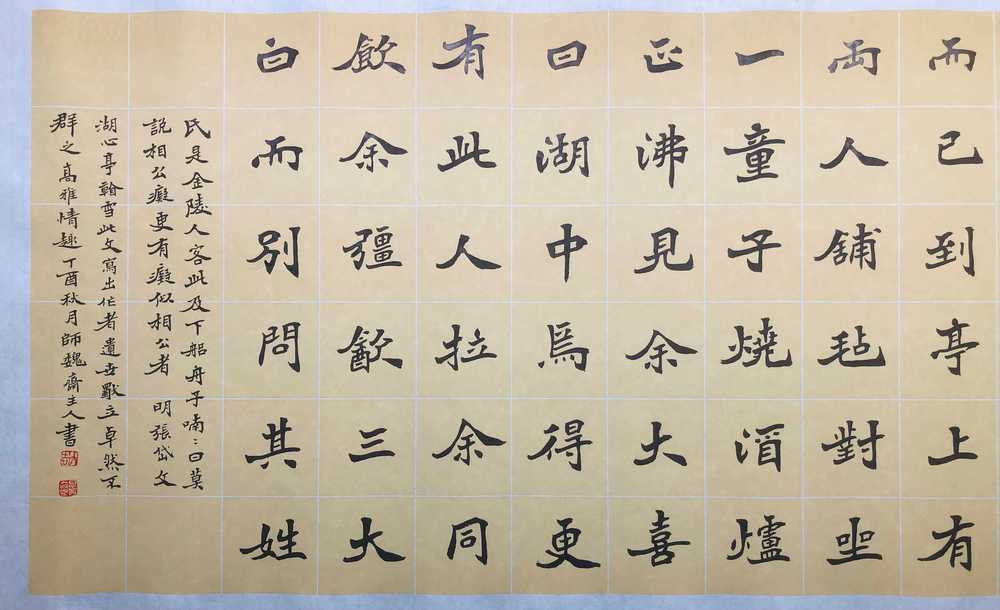 而已到亭上有
兩人舖毡對坐
一童子燒酒爐
正沸見余大喜
曰湖中焉得更
有此人拉余同
飲余彊㱃三大
白而別問其姓
氏是金陵人客此及下船舟子喃〻曰莫
說相公癡更有癡似相公者 明張岱文
湖心亭看雪此文寫出作者遺世獨立卓然不
群之高雅情趣丁酉秋月師魏齋主人書